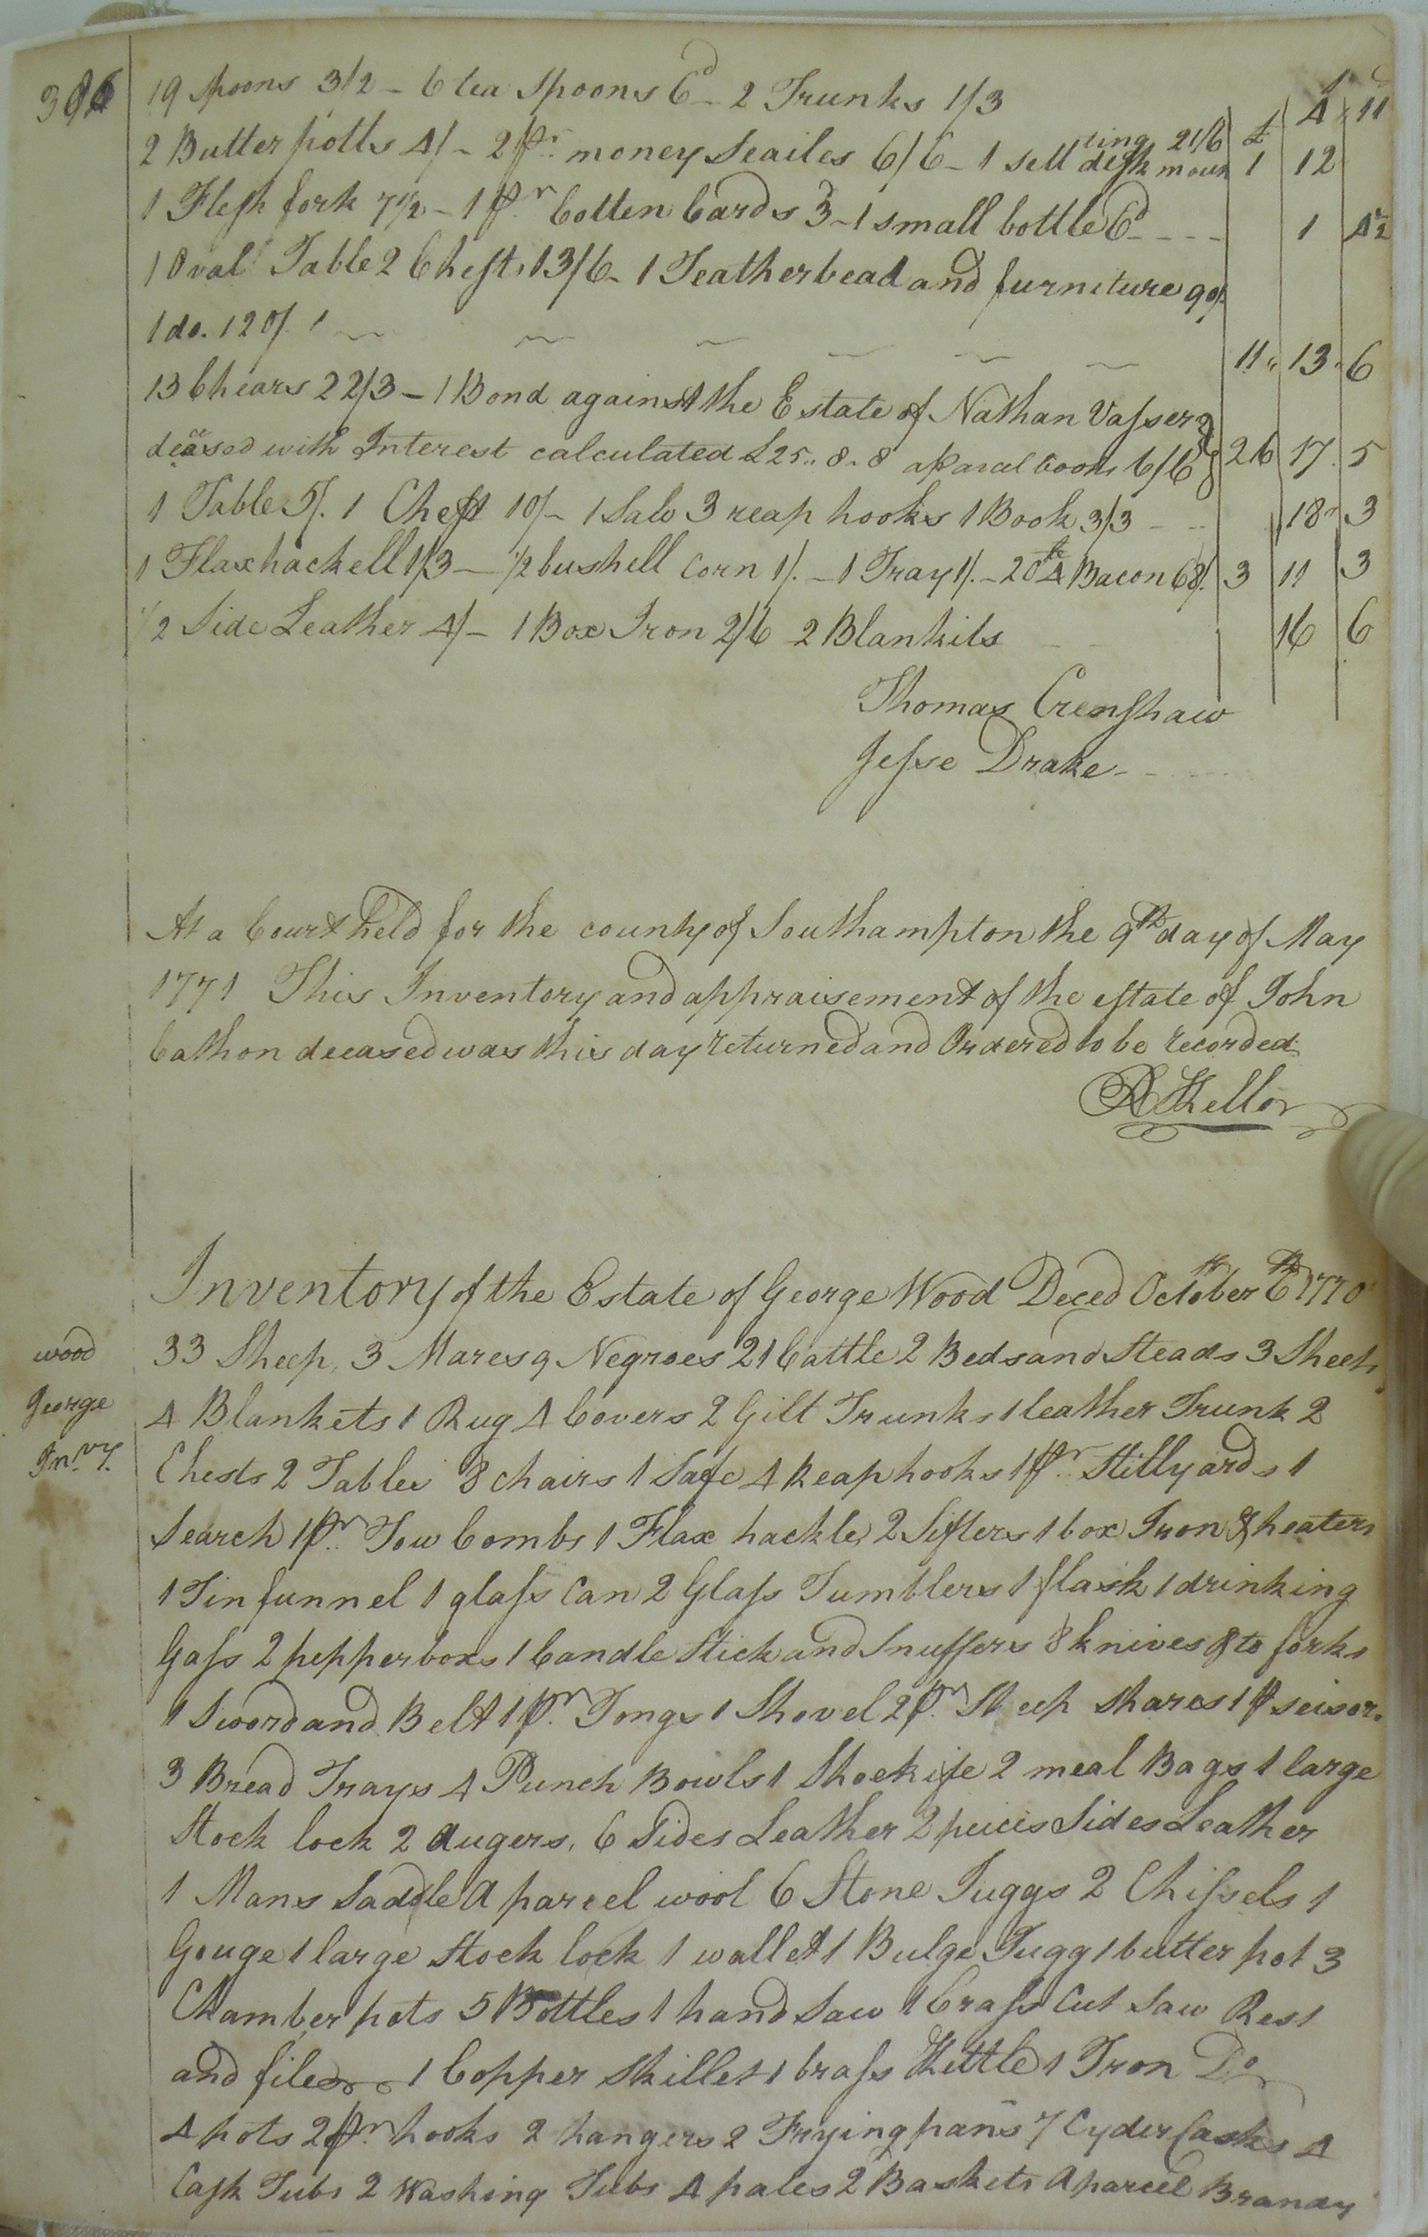 386
19 Spoons 3/2 - 6 tea Spoons 6d - 2 Trunks 1/3 4 11
2 Butter potts 4/- 2 pr. money Scailes 6/6 - 1 sett desk moun ting 21/6 £ 1 12
1 Flesh fork 7½ - 1 pr. Cotten Cards 3 - 1 small bottle 6d 1 4½
1 Oval Table 2 Chests 13/6 - 1 Featherbead and furniture 90/.
1 do. 120/. 11 " 13 " 6
13 Chears 22/3 - 1 Bond against the Estate of Nathan Vasser
deceased with Interest calculated £25 " 8 " 8 a parcel books 6/6 26 17 5
1 Table 5/. 1 Chest 10/- 1 Saw 3 reap hooks 1 Book 3/3 18 3
1 Flax hackell 1/3 - ½ bushell corn 1/. - 1 Tray 1/. - 204 lb Bacon 68/. 3 11 3
½ Side Leather 4/- 1 Box Iron 2/6 2 Blankits 16 6
Thomas Crenshaw
Jesse Drake
At a Court held for the county of Southampton the 9th day of May
1771 This Inventory and appraisement of the estate of John
Cathon deceased was this day returned and Ordered to be recorded
R Kello
Inventory of the Estate of George Wood Deced October 6th 1770
wood
George
Invy.
33 Sheep, 3 Mares 9 Negroes 21 Cattle 2 Beds and Steads 3 Sheets
4 Blankets 1 Rug 4 Covers 2 Gilt Trunks 1 leather Trunk 2
Chests 2 Tables 8 chairs 1 Safe 4 Reap hooks 1 pr. Stillyards 1
Search 1 pr. Tow Combs 1 Flax hackle, 2 Sifters 1 box Iron & heaters
1 Tin funnel 1 glass Can 2 Glass Tumblers 1 flask 1 drinking
Gass 2 pepperboxs 1 Candle Stick and Snuffers 8 knives & 10 forks
1 Sword and Belt 1 pr. Tongs 1 Shovel 2 pr. Sheep shares 1 p seisors
3 Bread Trays 4 Punch Bowls 1 Shoe knife 2 meal Bags 1 large
Stock lock 2 augers, 6 Sides Leather 2 peices Sides Leather
1 Mans Saddle A parcel wool 6 Stone Juggs 2 Chissels 1
Gouge 1 large Stock lock 1 wallet 1 Bulge Jugg 1 butter pot 3
Chamber pots 5 Bottles 1 hand Saw 1 Crass Cut Saw Rest
and file 1 Copper Skillet 1 brass Kettle 1 Iron Do
4 pots 2 pr. hooks 2 hangers 2 Frying pans 7 Cyder Casks 4
Cask Tubs 2 Washing Tubs 4 pales 2 Baskets A parcel Brandy